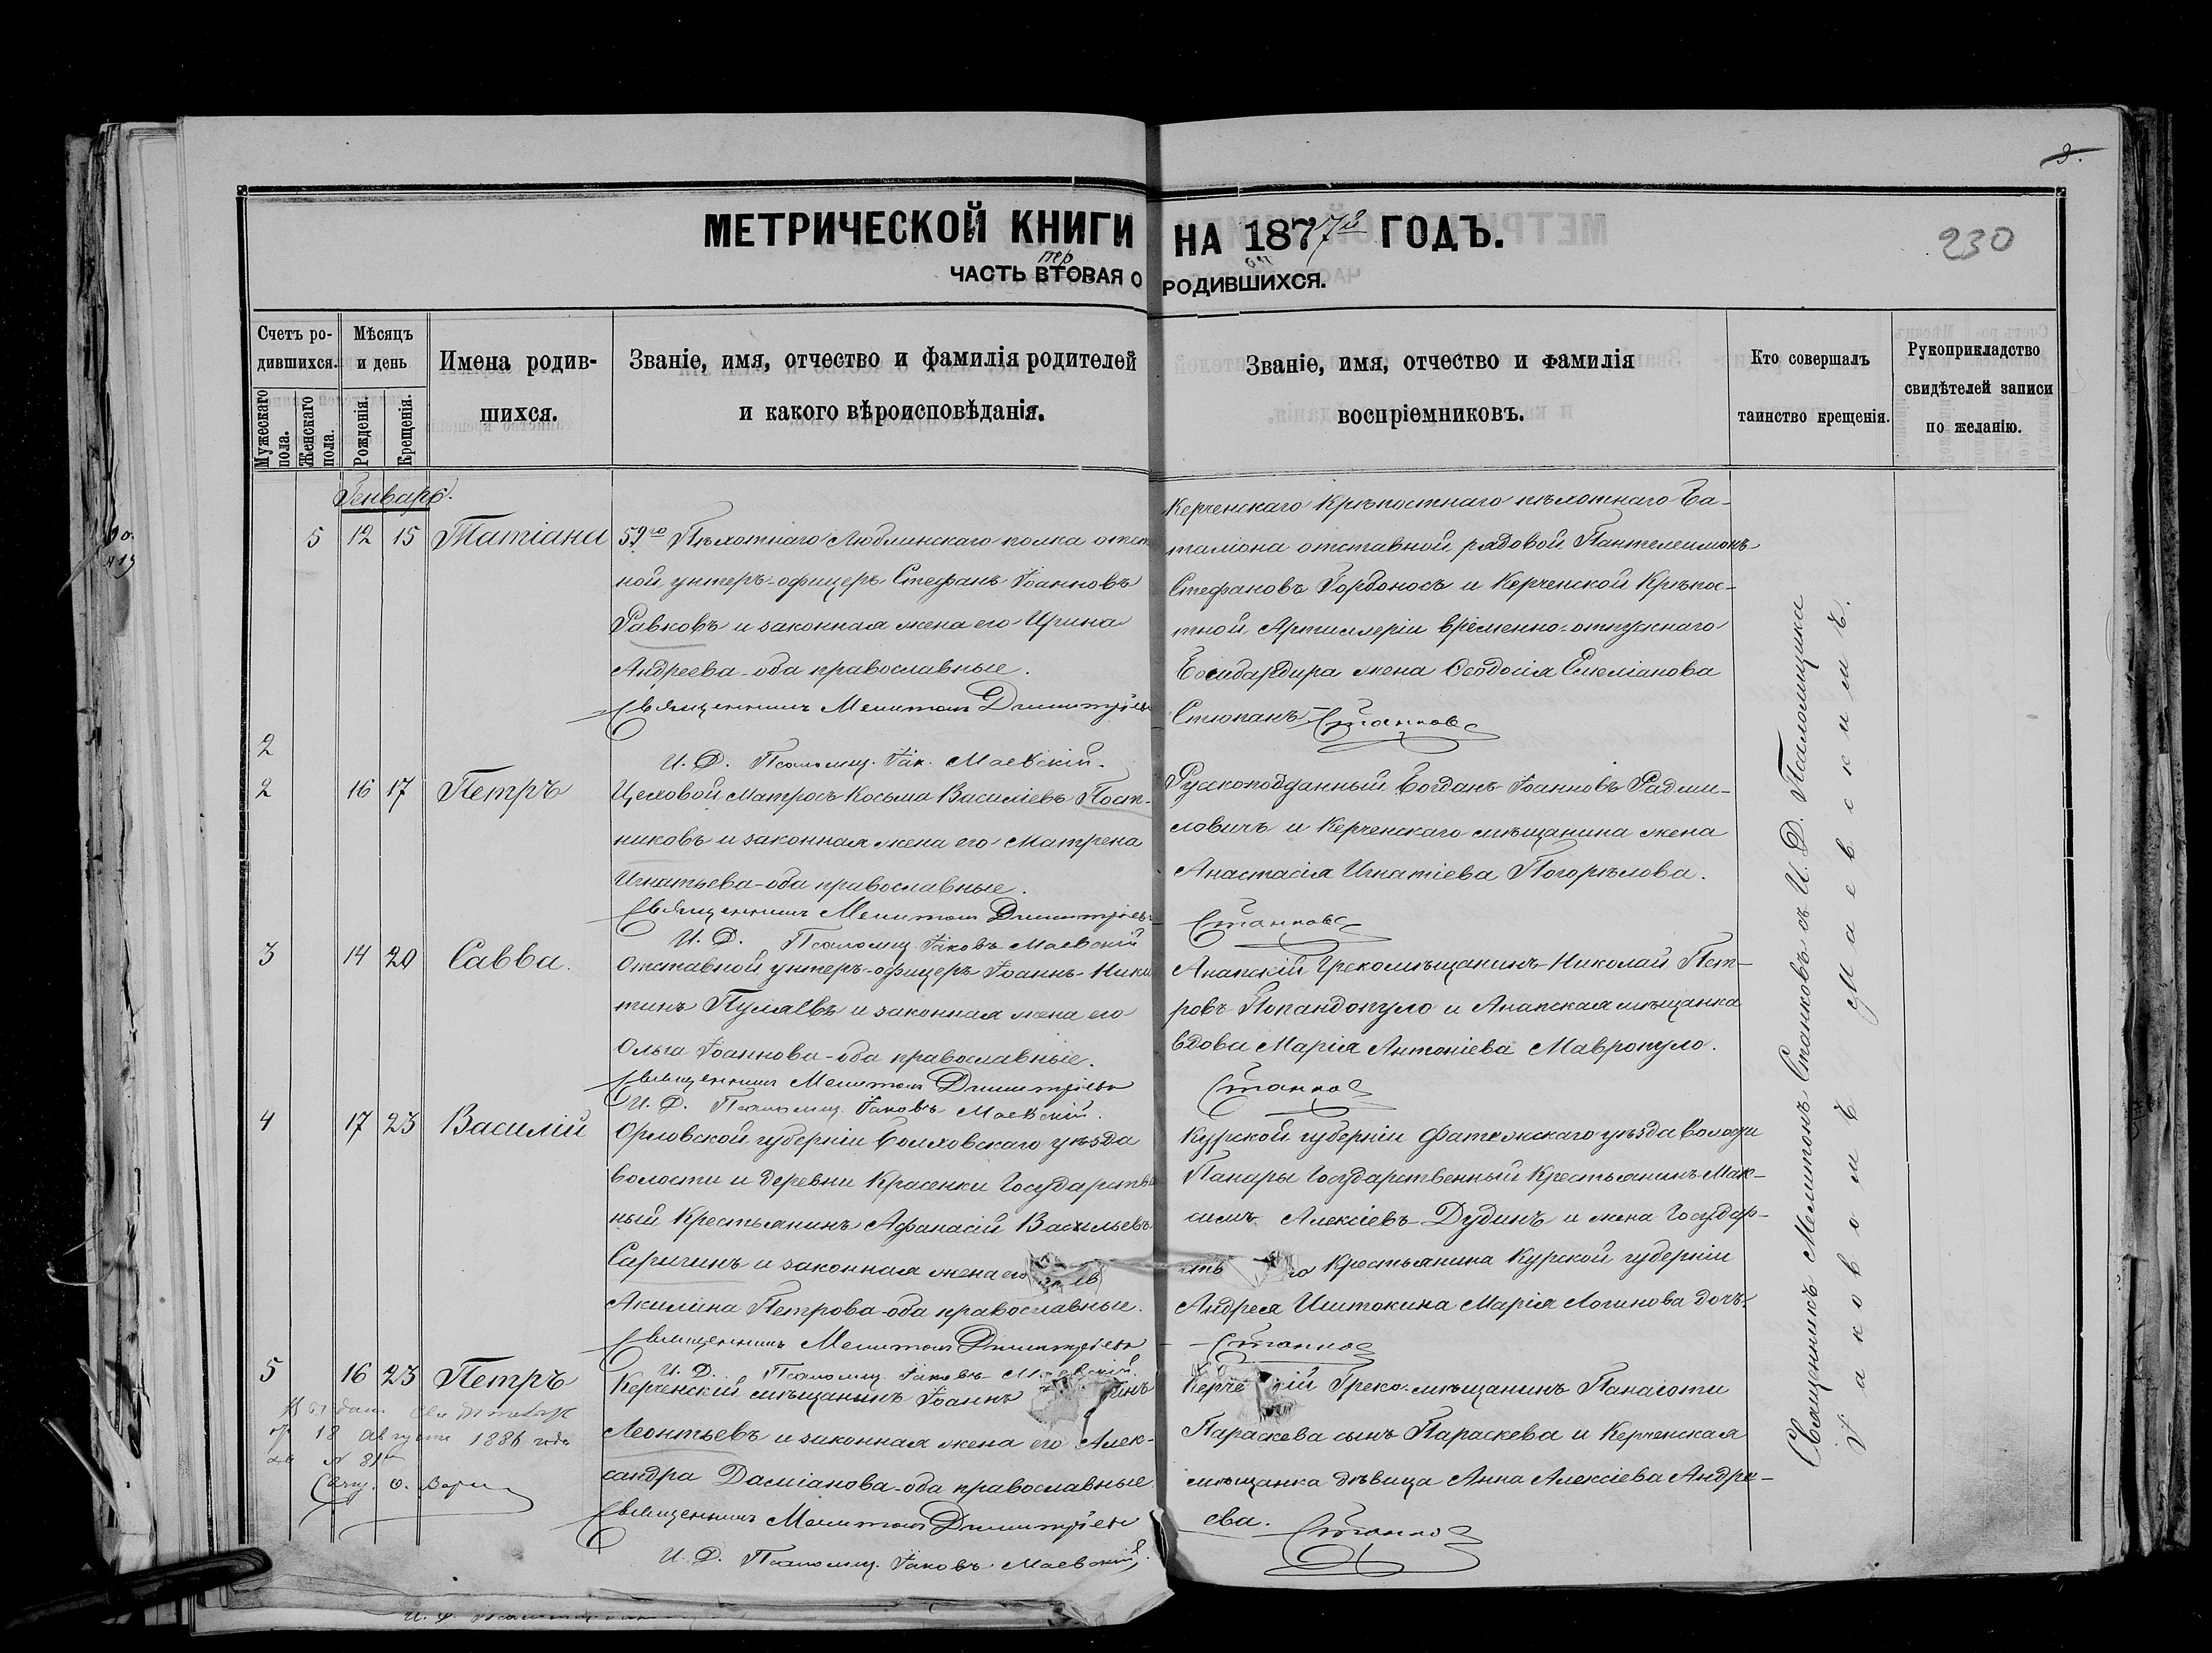 3.
МЕТРИЧЕСКОЙ КНИГИ НА 1877й ГОДЪ.
230
пер
ЧАСТЬ ВТОРАЯ О РОДИВШИХСЯ.
Счетъ ро-
дившихся.
Мужескаго пола.
Женскаго пола.
Мѣсяцъ
и день
Рожденія.
Крещенія.
Имена родив-
шихся.
Званіе, имя, отчество и фамилія родителей
и какого вѣроисповѣданія.
Званіе, имя, отчество и фамилія
воспріемниковъ.
Кто совершалъ
таинство крещенія.
Рукоприкладство
свидѣтелей записи
по желанію.
Генварь.
5 12 15 Татіана
59го Пѣхотнаго Люблинскаго полка отст
ной унтеръ-офицеръ Стефанъ Іоанновъ
Равковъ и законная жена его Ирина
Андреева-оба православные.
Священникъ Мелитонъ Димитріевъ
И. Д. Псаломщ. Іак. Маевскій.
Керченскаго Крѣпостнаго пѣхотнаго Ба-
таліона отставной рядовой Пантелеимонъ
Стефановъ Горбоносъ и Керченской Крѣпос-
тной Артиллеріи временно-отпускнаго
Бомбардира жена Ѳеодосія Емеліанова
Стюпанъ Станковъ
2
2 16 17 Петръ
Цеховой матросъ Косьма Василіевъ Пост-
никовъ и законная жена его Матрена
Игнатьева-оба православные.
Священникъ Мелитонъ Димитріевъ
И. Д. Псаломщ. Іаковъ Маевскій
Рускоподданный Богданъ Іоанновъ Радми-
ловичъ и Керченскаго мѣщанина жена
Анастасія Игнатіева Погорѣлова.
Станковъ
3 14 20 Савва.
Отставной унтеръ-офицеръ Іоаннъ Ники
тинъ Пуляевъ и законная жена его
Ольга Іоаннова-оба православные.
Священникъ Мелитонъ Димитріевъ
И. Д. Псаломщ. Іаковъ Маевскій.
Анапскій Грекомѣщанинъ Николай Пет-
ровъ Попандопуло и Анапская мѣщанка
вдова Марія Антоніева Мавропуло.
Станковъ
4 17 23 Василій
Орловской губерніи Болховскаго уѣзда
волости и деревни Красенки Государствен
ный Крестьянинъ Афанасій Васильевъ
Саричинъ и законная жена его
Акилина Петрова-оба православные.
Священникъ Мелитонъ Димитріевъ
И. Д. Псаломщ. Іаковъ Маевскій
Курской губерніи Фатежскаго уѣзда волости
Паниры Государственный Крестьянинъ Мак-
симъ Алексіевъ Дудинъ и жена Государ-
го Крестьянина Курской губерніи
Андрея Ишткокина Марія Логинова дочь.
Станковъ
5 16 23 Петръ
18 августа 1886 года
№ 81
Свящ. О.
Керченскій мѣщанинъ Іоаннъ
Леонтьевъ и законная жена его Алек-
сандра Даміанова-оба православные.
Священникъ Мелитонъ Димитріевъ
И. Д. Псаломщ. Іаковъ Маевскій.
Керче ій Греко-мѣщанинъ Панаіоти
Параскева сынъ Параскева и Керченская
мѣщанка дѣвица Анна Алексіева Андре-
ева. Станковъ
Священникъ Мелитонъ Станковъ съ И. Д. Псаломщика
Іаковомъ Маевскимъ.